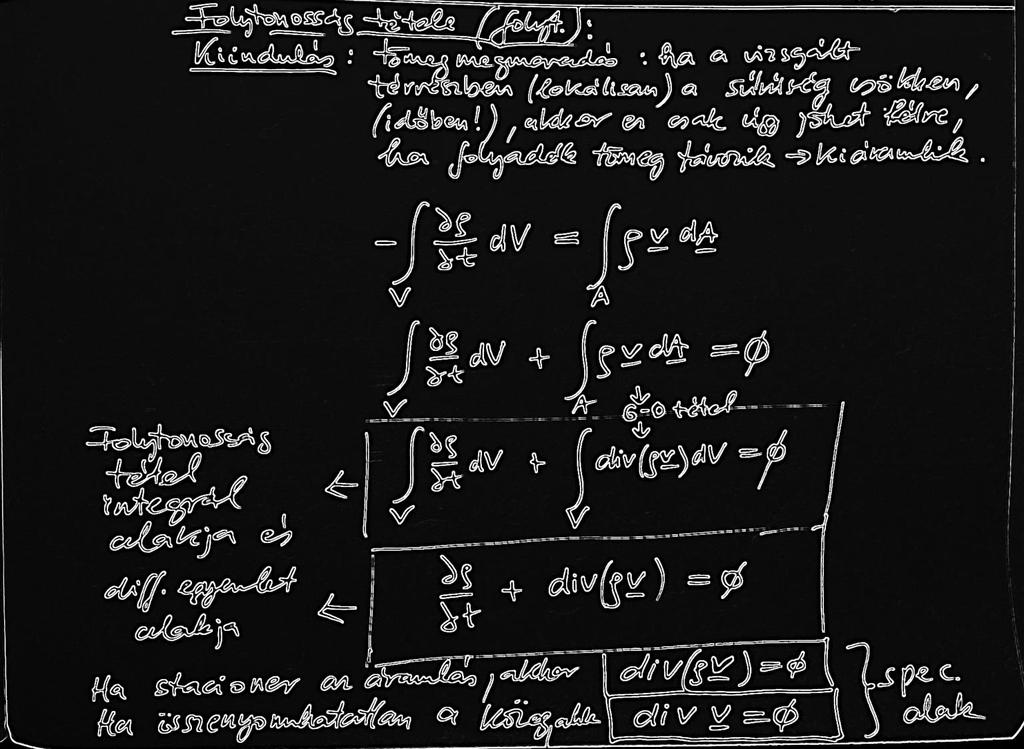 Folytonosság tétele (folyt.):
Kiindulás: tömegmegmaradás: ha a vizsgált
térrészben (lokálisan) a sűrűség csökken,
(időben!), akkor ez csak úgy jöhet létre,
ha folyadék tömeg távozik → kiáramlik.
-∫_V ∂ρ/∂t dV = ∫_A ρ v dA
∫_V ∂ρ/∂t dV + ∫_A ρ v dA = ϕ
↓
G-O tétel
↓
∫_V ∂ρ/∂t dV + ∫_V div(ρv)dV = ϕ
Folytonosság
tétel ←
integrál
alakja és
∂ρ/∂t + div(ρv) = ϕ
diff. egyenlet ←
alakja
Ha stacioner az áramlás, akkor div(ρv) = ϕ
Ha összenyomhatatlan a közeg, akk div v = ϕ
} spec.
alak